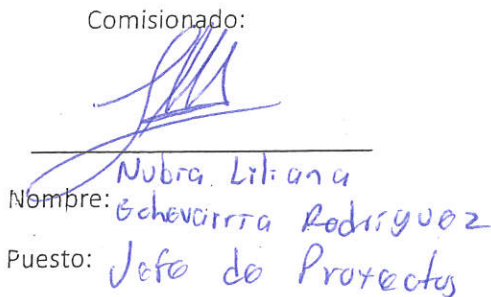 Comisionado:
Nubia Liliana
Nombre: Echevarrra Rodriguez
Puesto: Jefe de Proyectos